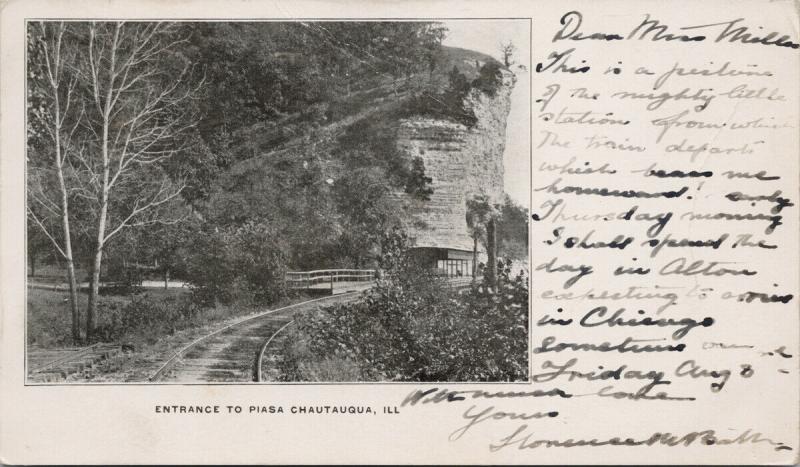 Dear Miss Mills
This is a picture
of the mighty little
station from which
the train departs
which bears me
homeward! early
Thursday morning
I shall spend the
day in Alton
expecting to arrive
in Chicago
sometime
Friday Aug 8 -
With much love
Yours
Florence
ENTRANCE TO PIASA CHAUTAUQUA, ILL